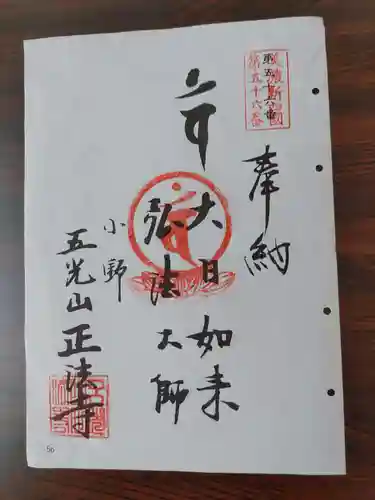 奉納
大日如来
弘法大師
小野
五光山正法寺
第五十六番
56